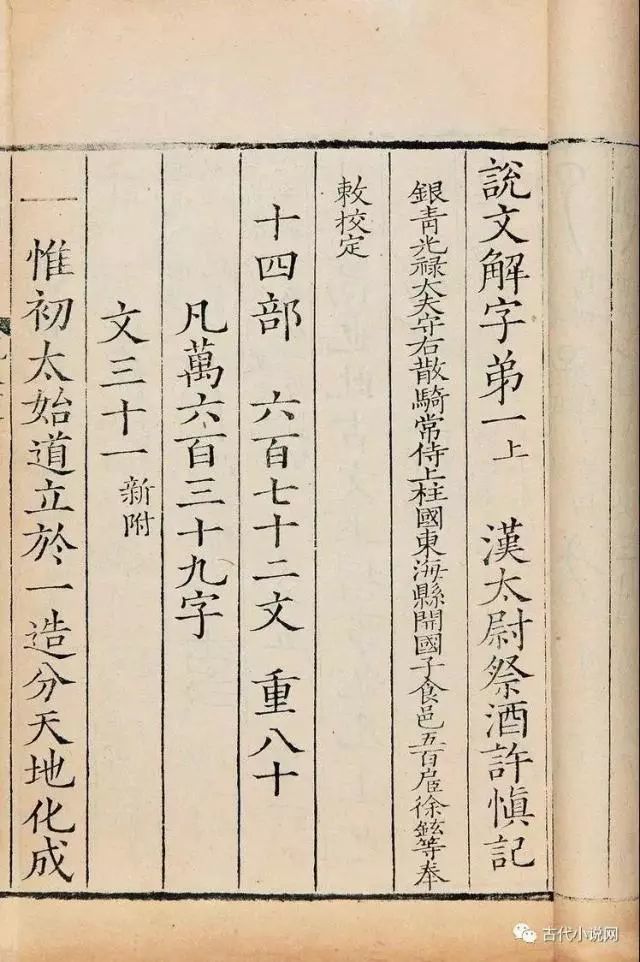 說文解字弟一上 漢太尉祭酒許愼記
銀青光禄大夫守右散騎常侍上柱國東海縣開國子食邑五百戶臣徐鉉等奉
敕校定
十四部 六百七十二文 重八十
凡萬六百三十九字
文三十一新附
一 惟初太始道立於一造分天地化成
古代小说网